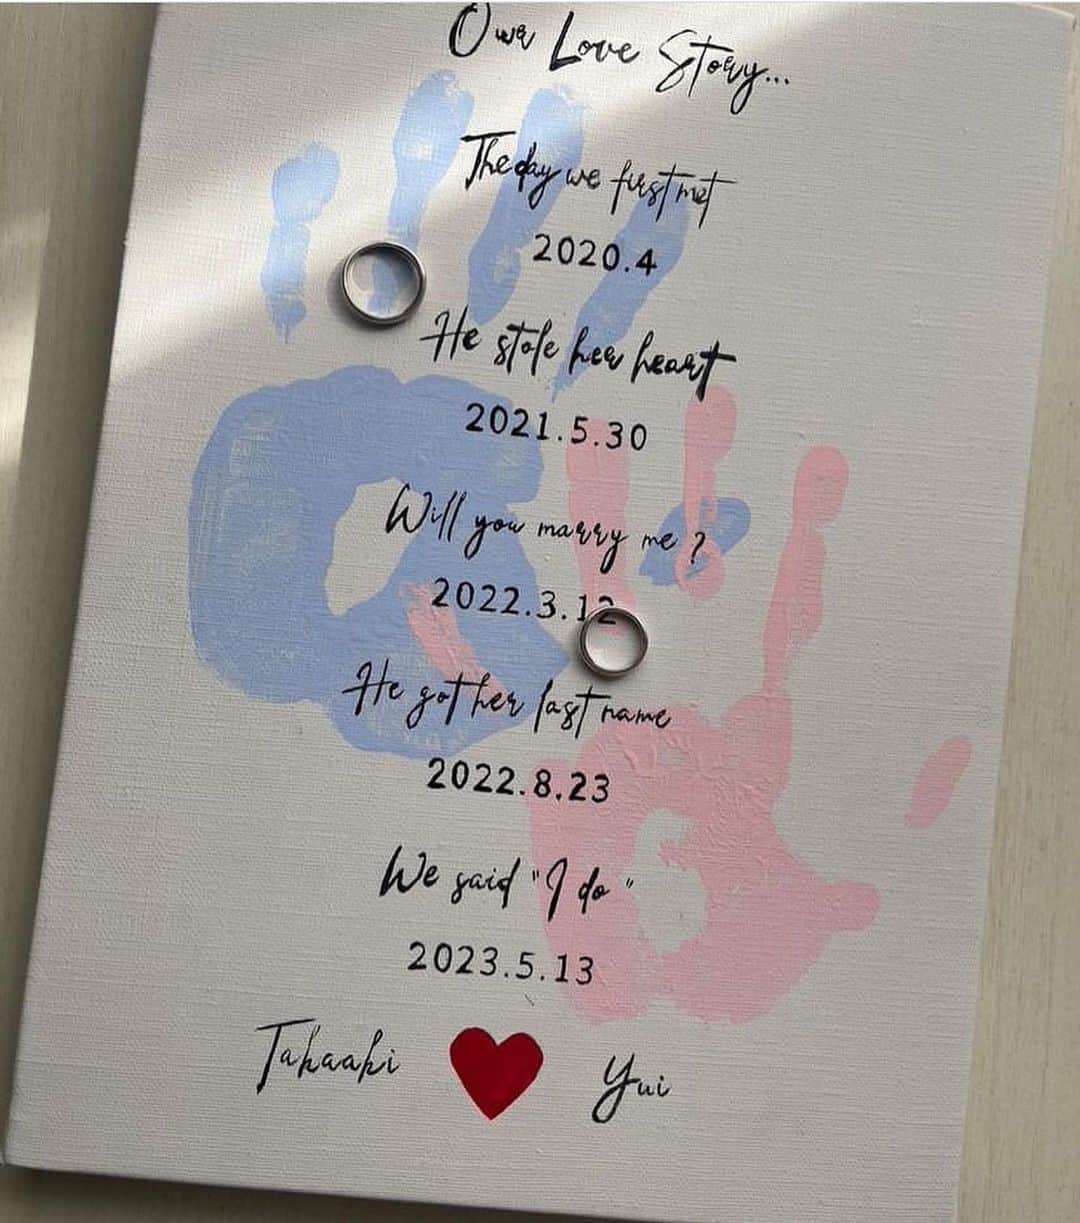 Our Love Story...
The day we first met
2020.4
He stole her heart
2021.5.30
Will you marry me ?
2022.3.12
He got her last name
2022.8.23
We said "I do"
2023.5.13
Takaaki
Yui